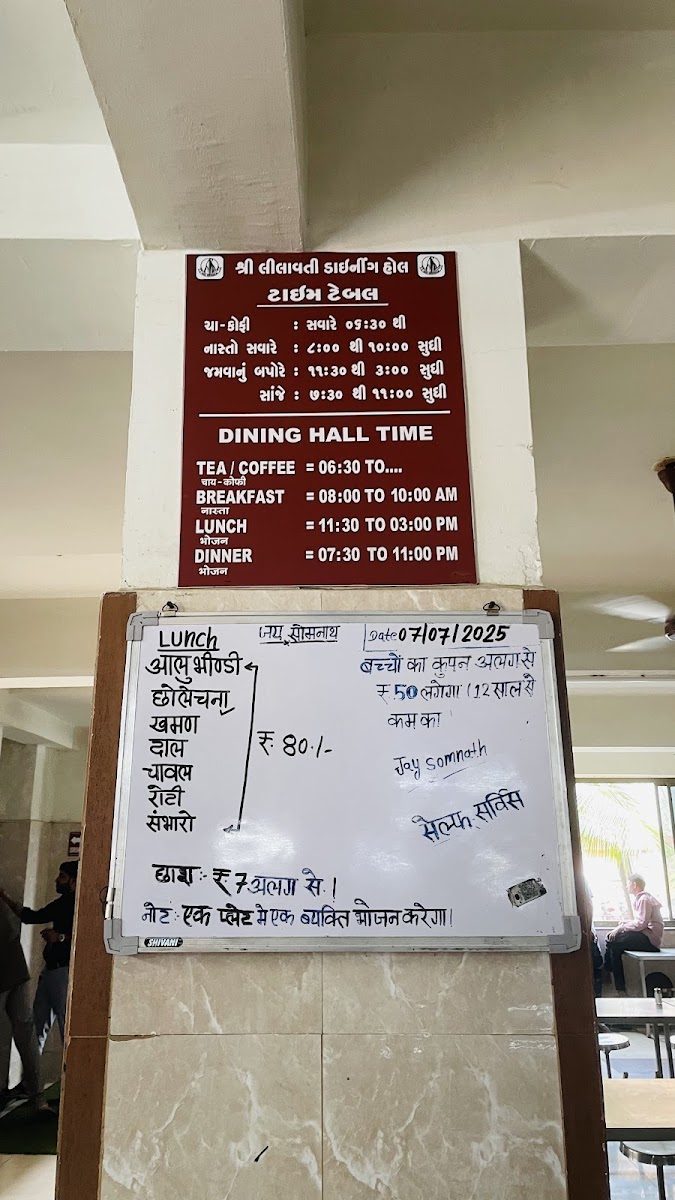 શ્રી લીલાવતી ડાઈનીંગ હોલ
ટાઈમ ટેબલ
ચા-કોફી : સવારે ૦૬:૩૦ થી
નાસ્તો સવારે : ૮:૦૦ થી ૧૦:૦૦ સુધી
જમવાનું બપોરે : ૧૧:૩૦ થી ૩:૦૦ સુધી
સાંજે : ૭:૩૦ થી ૧૧:૦૦ સુધી
DINING HALL TIME
TEA / COFFEE = 06:30 TO....
चाय-कोफी
BREAKFAST = 08:00 TO 10:00 AM
नास्ता
LUNCH = 11:30 TO 03:00 PM
भोजन
DINNER = 07:30 TO 11:00 PM
भोजन
Lunch
जय सोमनाथ
Date 07/07/2025
आलु भीण्डी
छोलेचना
खमण
दाल
चावल
रोटी
संभारो
₹. 80./-
बच्चों का कुपन अलग से
₹ 50 लगेगा (12 साल से
कम का
Jay Somnath
सेल्फ सर्विस
छाश :- ₹ 7 अलग से।
नोट : एक प्लेट मे एक व्यक्ति भोजन करेगा।
SHIVANI